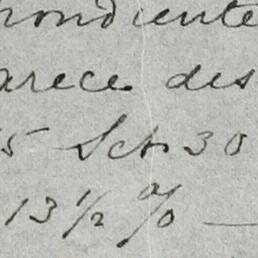 rondiente
arece des
5 Sct. 30
13 ½ % —